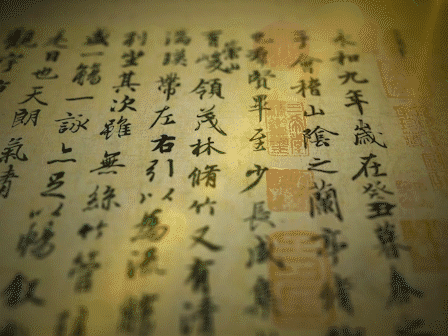 永和九年歲在癸丑暮春
于會稽山陰之蘭亭脩
也羣賢畢至少長咸集
有崇山峻領茂林脩竹又有清
湍暎帶左右引以為流觴
列坐其次雖無絲竹管
盛一觴一詠亦足以暢敘
是日也天朗氣清
觀宇